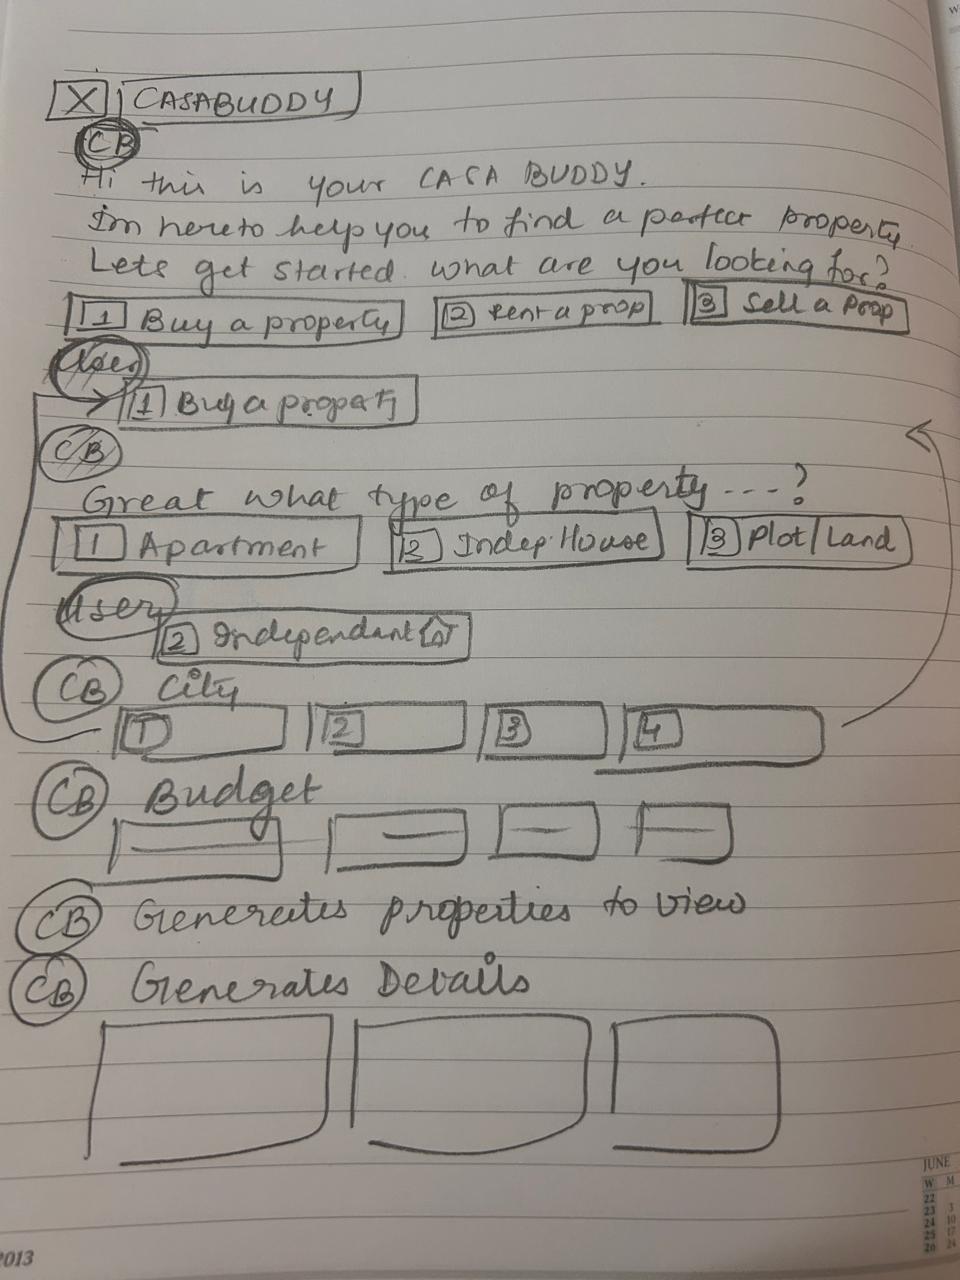 X CASABUDDY
CB
Hi this is your CASA BUDDY.
Im here to help you to find a perfect property.
Lets get started. what are you looking for?
1 Buy a property 2 Rent a prop 3 Sell a Prop
User
1 Buy a property
CB
Great what type of property ---?
1 Apartment 2 Indep. House 3 Plot/Land
User
2 Independant
CB City
1 2 3 4
CB Budget
CB Generates properties to view
CB Generates Details
JUNE
W M
22
23 3
24 10
25 17
26 24
2013